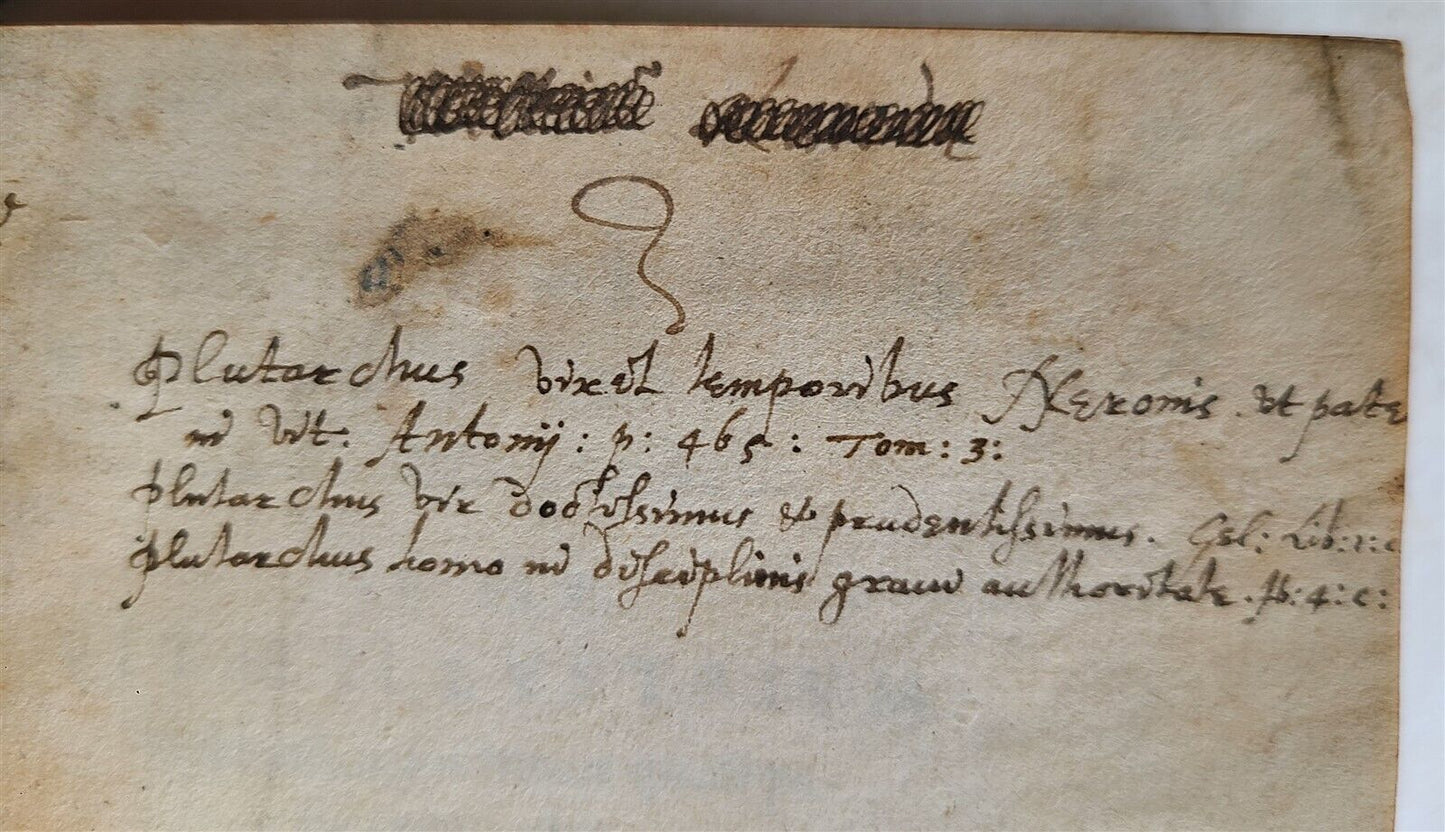 Plutarchus vixit temporibus Neronis. ut pate
in vit. Antonij: p: 465: Tom: 3:
Plutarchus vir doctissimus et prudentissimus. Gel: Lib: 1: c
Plutarchus homo in disciplinis graui authoritate. lb: 4: c: